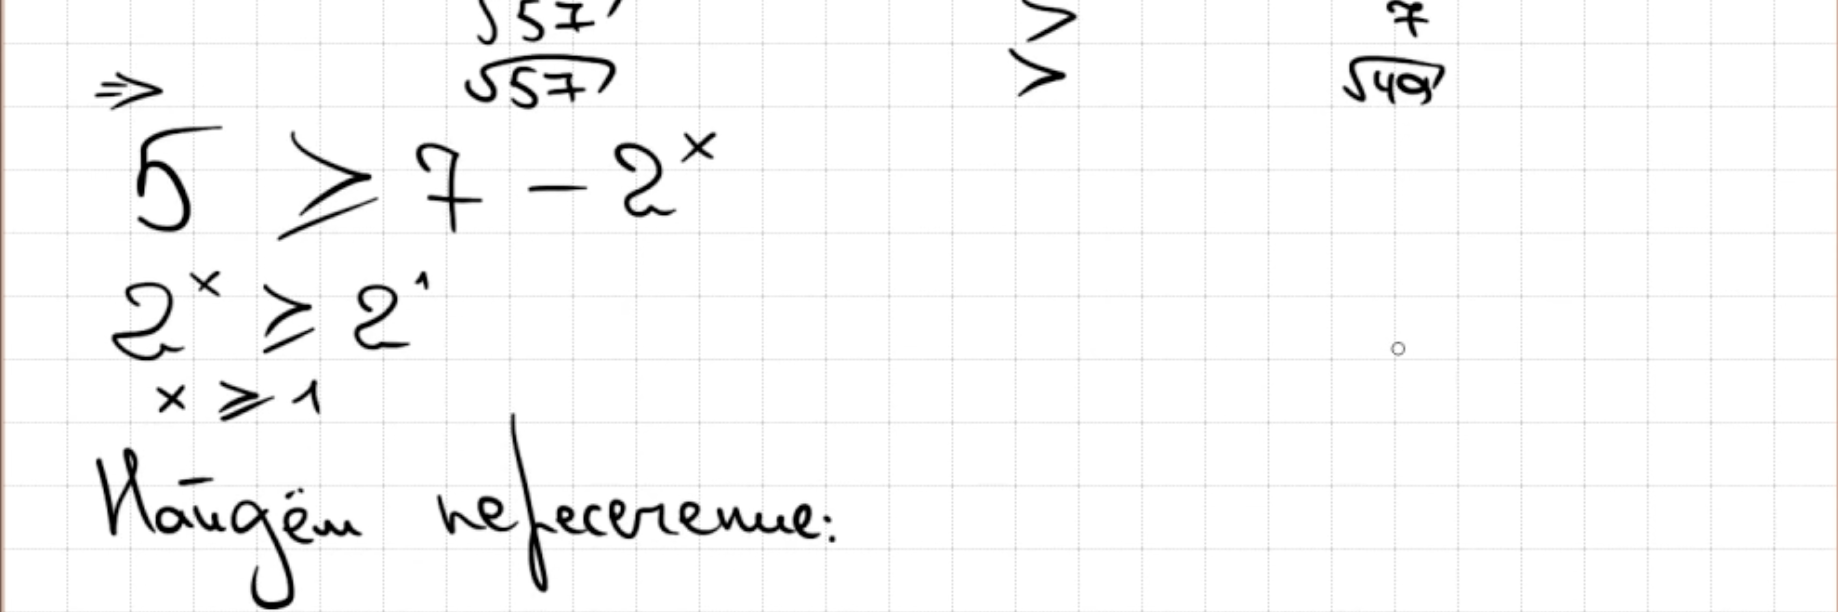 √57 > 7
⇒ √57 > √49
5 ≥ 7 - 2^x
2^x ≥ 2^1
x ≥ 1
Найдём пересечение: